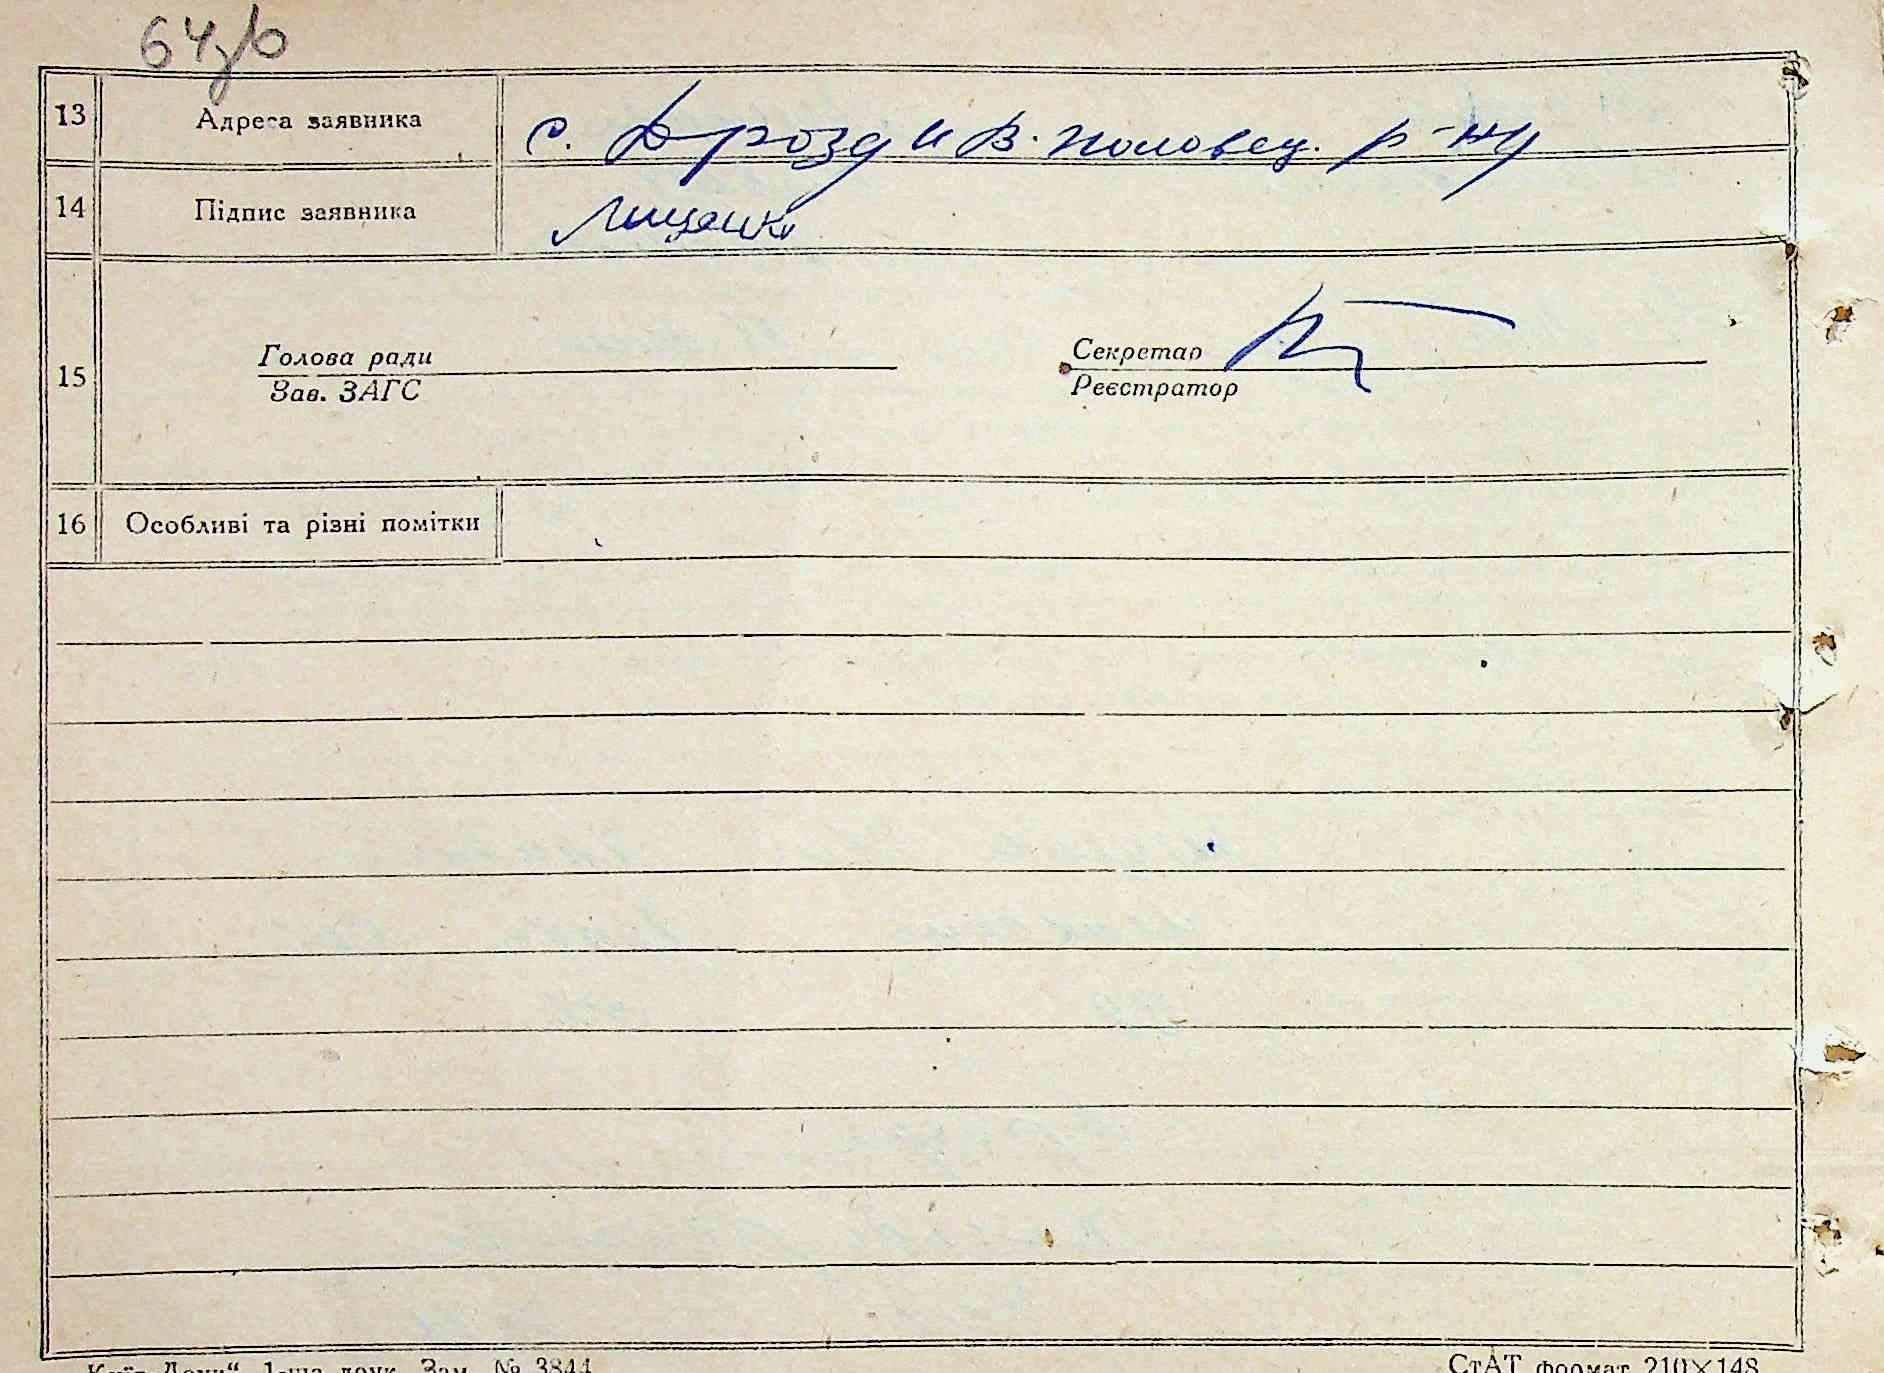 64зв
13 Адреса заявника с. Дрозди В. Половец. р-ну
14 Підпис заявника Лищенко
Голова ради Секретар
15
Зав. ЗАГС Реєстратор
16 Особливі та різні помітки
1-ша друк. Зам. № 3844 СтАТ формат 210×148